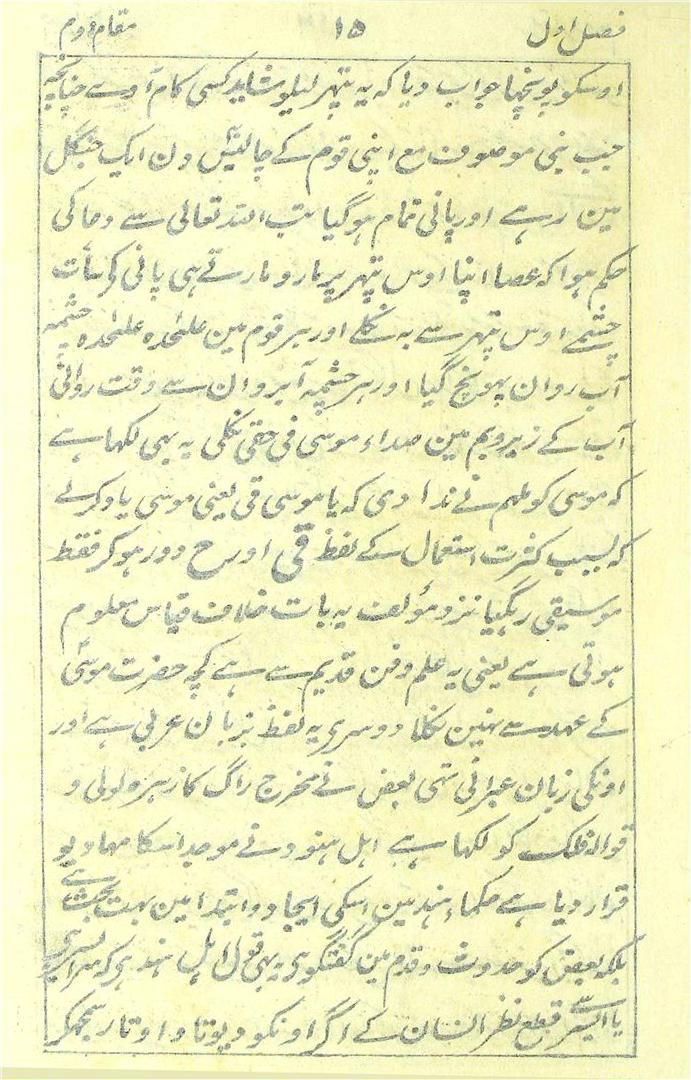 فصل اول ۱۵ مقام دوم
اوسکو پونچها جواب دیا کہ یہ پتہر لیلو شاید کسی کام آوے چنانچہ
جب نبی موصوف مع اپنی قوم کے چالیس دن ایک جنگل
مین رہے اور پانی تمام ہوگیا تب اللہ تعالی سے دعا کی
حکم ہوا کہ عصا اپنا اوس پتہر پر مارو مارتے ہی پانی کے سات
چشمے اوس پتہر سے بہ نکلے اور ہر قوم مین علیٰحدہ علیٰحدہ چشمہ
آب روان پہونچ گیا اور ہر چشمہ آب روان سے وقت روانی
آب کے زیر و بم مین صداء موسی فی حقی نکلی یہ بہی لکہا ہے
کہ موسی کو ملہم نے ندا دی کہ یا موسی قی یعنی موسی یاد کرلے
کہ بسبب کثرت استعمال کے لفظ قی اور ح دور ہوکر فقط
موسیقی رہگیا نزد مؤلف یہ بات خلاف قیاس معلوم
ہوتی ہے یعنی یہ علم و فن قدیم سے ہے کچہ حضرت موسیٰ
کے عہد سے نہین نکلا دوسری یہ لفظ بزبان عربی ہے اور
اونکی زبان عبرانی تہی بعض نے مخرج راگ کا زہرہ لولی و
قوالہ فلک کو لکہا ہے اہل ہنود نے موجد اسکا مہادیو
قرار دیا ہے حکماء ہند مین اسکی ایجاد و ابتدا مین بہت بحث ہے
بلکہ بعض کو حدوث و قدم مین گفتگو ہی یہ بہی قول اہل ہند ہی کہ سرا
یا ایسر سے قطع نظر انسان کے اگر اونکو دیوتا و اوتار سمجہکر